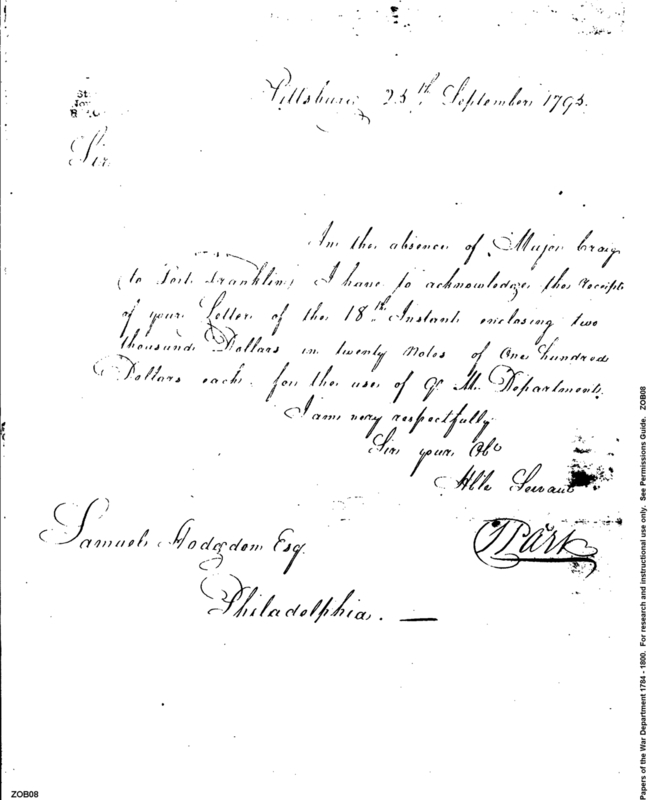 Pittsburg 25th September 1795.
Sir
In the absence of Major Craig
to Fort Franklin, I have to acknowledge the receipt
of your Letter of the 18th Instant enclosing two
thousand Dollars in twenty Notes of One hundred
Dollars each for the use of Q. M. Department.
I am very respectfully
Sir your Obt
Hble Servant
JPark
Samuel Hodgdon Esq.
Philadelphia. —
ZOB08
Papers of the War Department 1784 - 1800. For research and instructional use only. See Permissions Guide. ZOB08